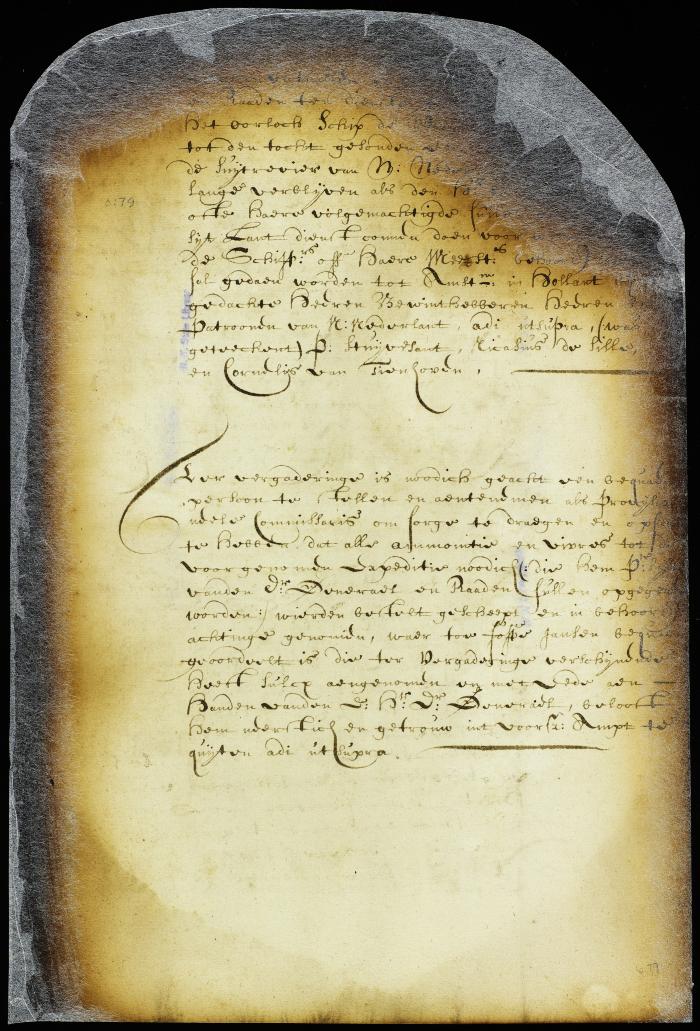 en Raaden ten dienst
het oorloch Schip de
tot den tocht gesonden
de Suytrevier van N: Neder
lange verblyven als den
ofte haere volgemachtigde
syt Lant dienst connen doen voor
de Schipp:rs off haere Meest:rs behoor
sal gedaen worden tot Amst:m in Hollant
gedachte Heeren Bewinthebberen Heeren
Patroonen van N: Nederlant, adi utsupra, (was
geteeckent) P: Stuyvesant, Nicasius de Sille,
en Cornelis van Tienhoven.
0:79
Ter vergaderinge is noodich geacht een bequaem
persoon te stellen en aentenemen als Provisio
neele Commissaris om sorge te draegen en opsi
te hebben dat alle ammonitie en vivres tot
voorgenomen Expeditie noodich (: die hem
vanden Hr Generael en Raaden sullen opgege
worden:) wierden bestelt gescheept en in behoor
achtinge genomen, waer toe Joffe Jansen bequaem
geoordeelt is die ter Vergaderinge verschynende
heeft sulcx aengenomen en met Eede aen
handen vanden E: Hr Dr Generael, belooft
hem neerstich en getrouw int voorsz: Ampt te
quyten adi ut supra.